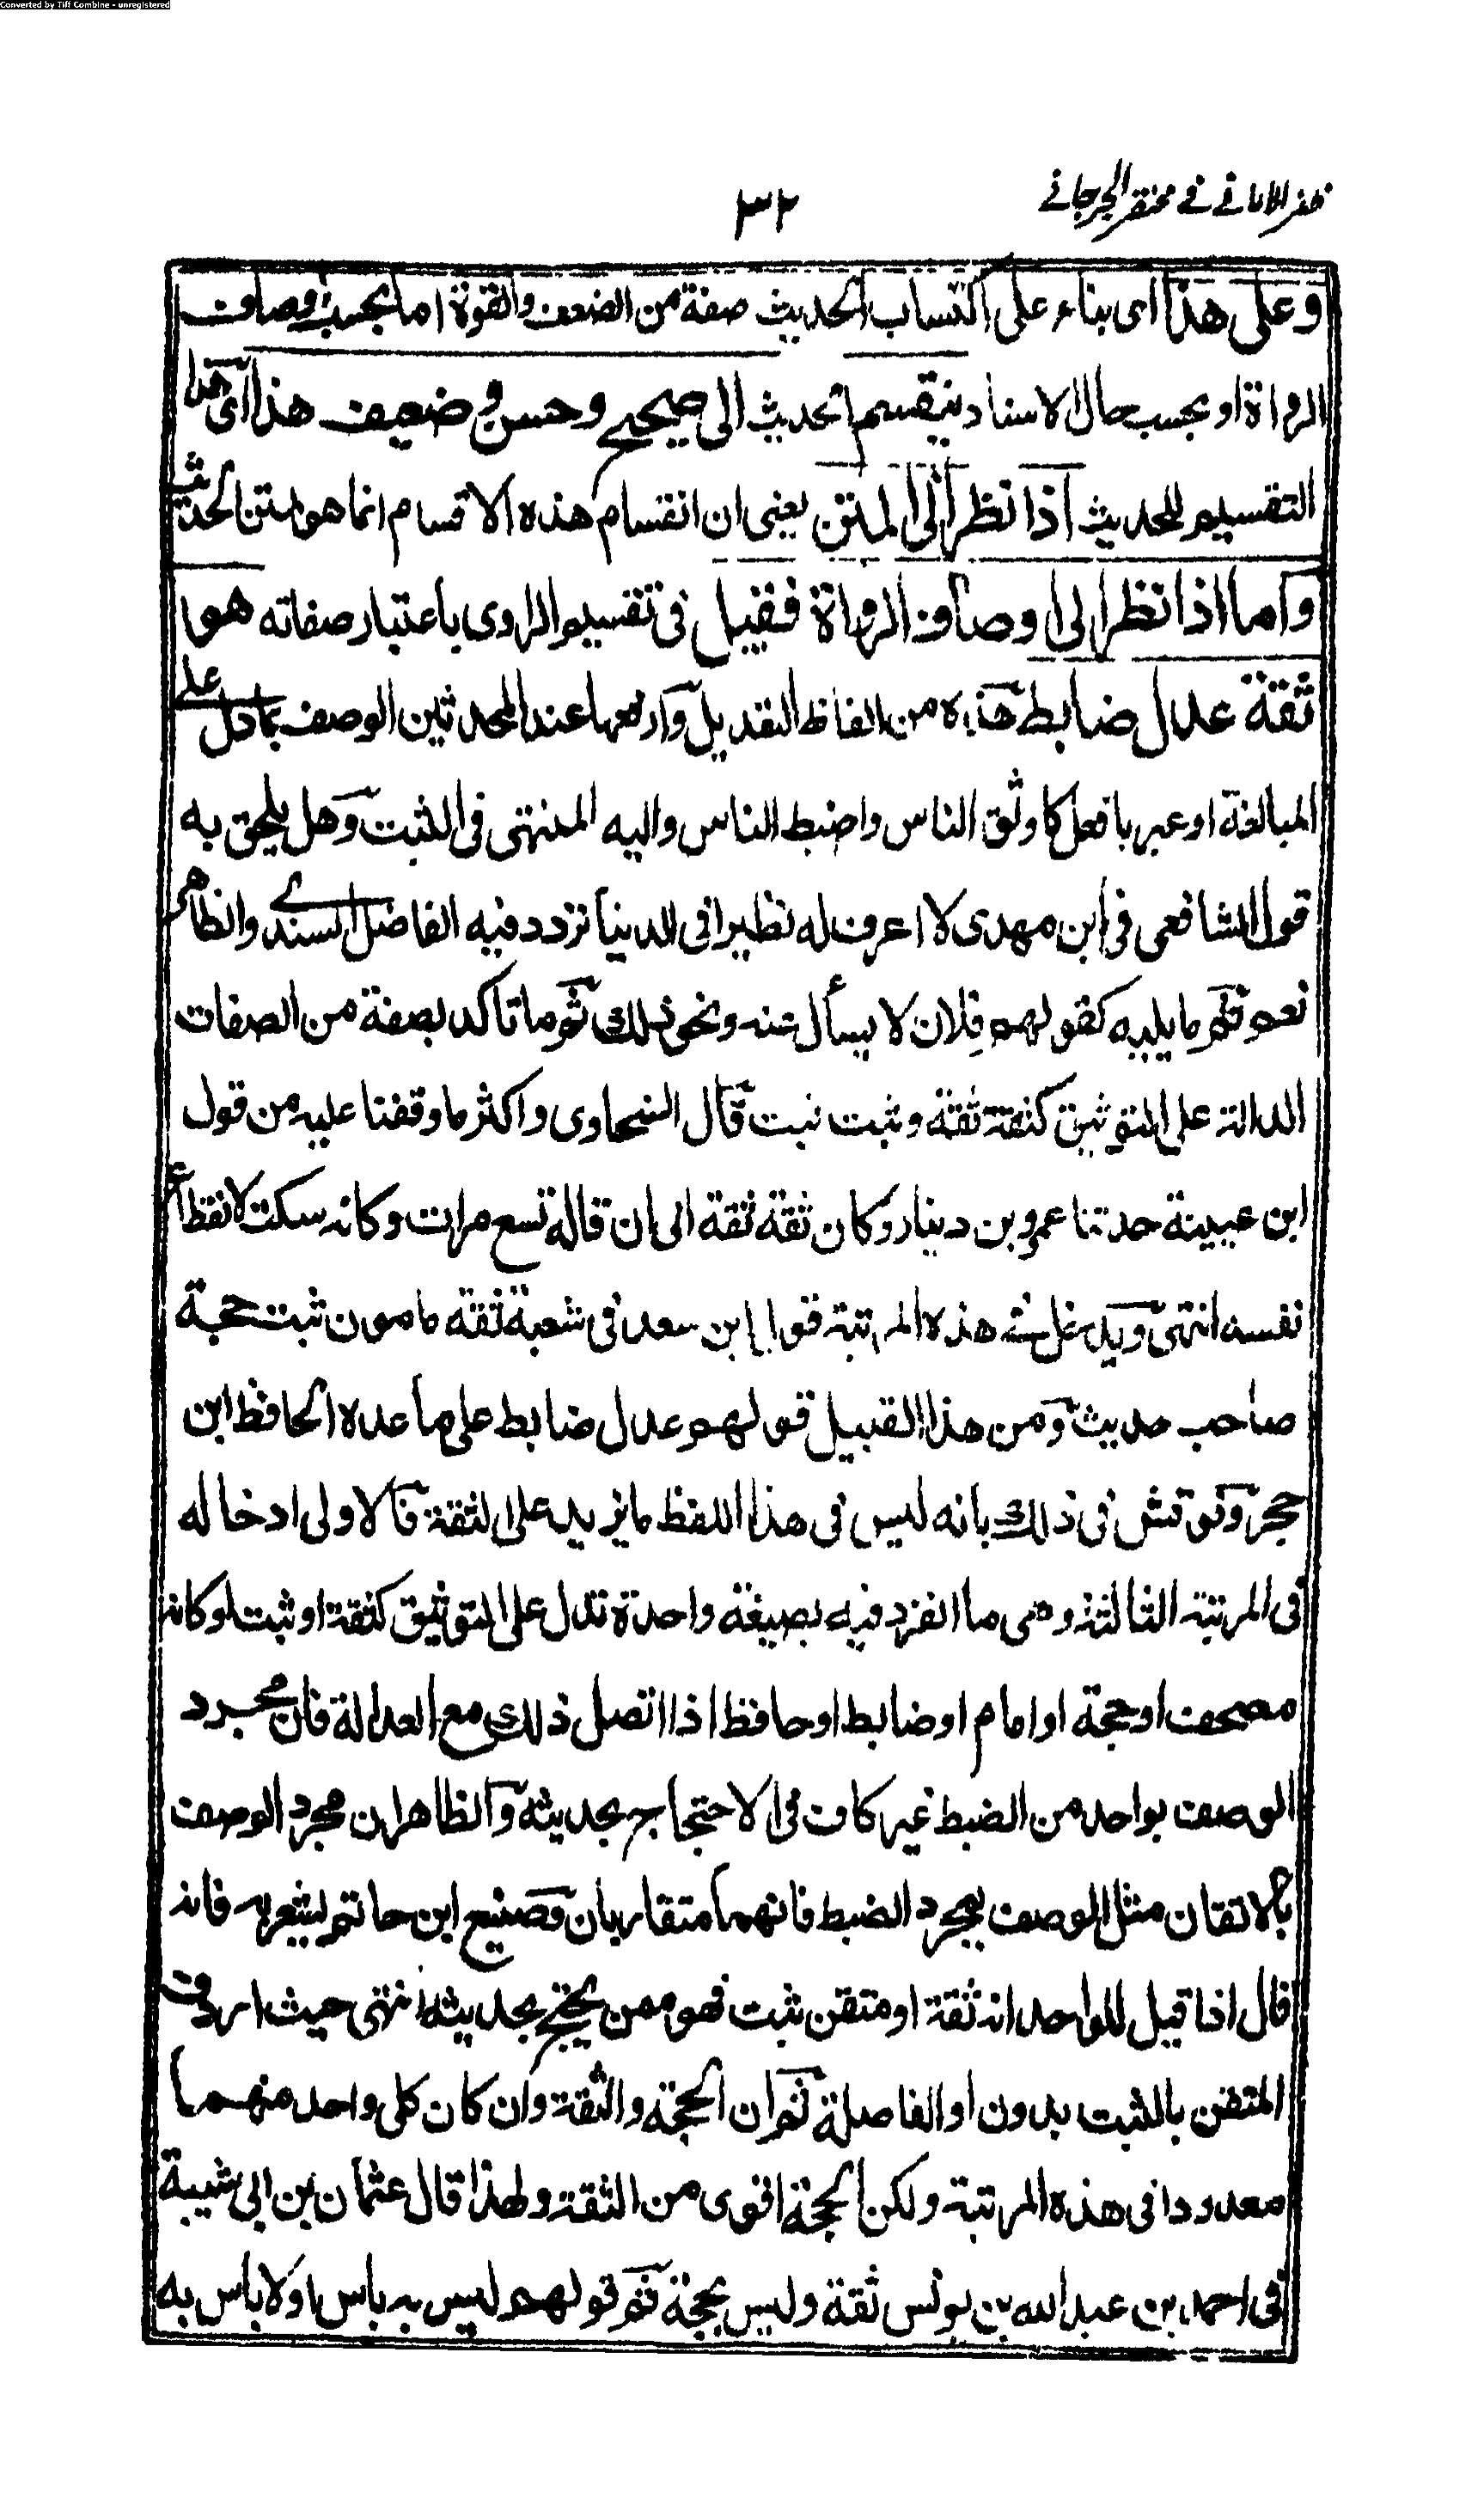 Converted by Tiff Combine - unregistered
ظفر الامانے فے مختصر الجرجانے
٣٢
وعلى هذا اى بناء على اكتساب الحديث صفة من الضعف والقوة اما بحسب اوصاف
الرواة او بحسب حال الاسناد ينقسم الحديث الى صحيح وحسن وضعيف هذا اى هذا
التقسيم للحديث اذا نظر الى المتن يعنى ان انقسام هذه الاقسام انما هو لمتن الحديث
واما اذا نظر الى اوصاف الرواة فقيل فى تقسيم الراوى باعتبار صفاته هو
ثقة عدل ضابط هذه من الفاظ التعديل وارفعها عند المحدثين الوصف بما دل على
المبالغة او عبر بافعل كاوثق الناس واضبط الناس واليه المنتهى فى الثبت وهل يلحق به
قول الشافعى فى ابن مهدى لا اعرف له نظيرا فى الدنيا تردد فيه الفاضل السندے والظاهر
نعم ثم ما يليه كقولهم فلان لا يسأل عنه ونحو ذلك ثم ما تاكد بصفة من الصفات
الدالة على التوثيق كثقة ثقة وثبت ثبت قال السخاوى واكثر ما وقفنا عليه من قول
ابن عيينة حدثنا عمرو بن دينار وكان ثقة ثقة الى ان قاله تسع مرات وكانه سكت لانقطاع
نفسه انتهى ويدخل فے هذه المرتبة قول ابن سعد فى شعبة ثقة مامون ثبت حجة
صاحب حديث ومن هذا القبيل قولهم عدل ضابط على ما عده الحافظ ابن
حجر ونوقش فى ذلك بانه ليس فى هذا اللفظ ما يزيد على الثقة فالاولى ادخاله
فى المرتبة الثالثة وهى ما انفرد فيه بصيغة واحدة تدل على التوثيق كثقة او ثبت او كانه
مصحف او حجة او امام او ضابط او حافظ اذا اتصل ذلك مع العدالة فان مجرد
الوصف بواحد من الضبط غير كاف فى الاحتجاج بحديثه والظاهر ان مجرد الوصف
بالاتقان مثل الوصف بمجرد الضبط فانهما متقاربان وصنيع ابن حاتم يشعر به فانه
قال اذا قيل للواحد انه ثقة او متقن ثبت فهو ممن يحتج بحديثه انتهى حيث اردف
المتقن بالثبت بدون او الفاصلة ثم ان الحجة والثقة وان كان كل واحد منهما
معدودا فى هذه المرتبة ولكن الحجة اقوى من الثقة ولهذا قال عثمان بن ابى شيبة
فى احمد بن عبد الله بن يونس ثقة وليس بحجة ثم قولهم ليس به باس او لا باس به